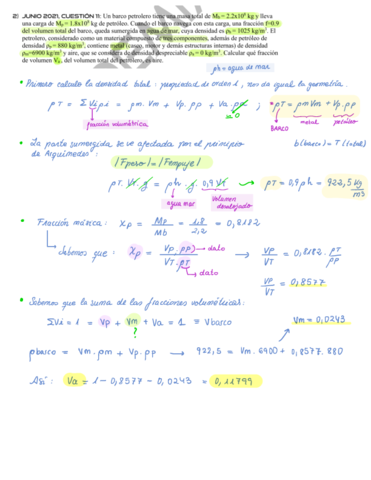 2) JUNIO 2021, CUESTIÓN 1: Un barco petrolero tiene una masa total de M_b = 2.2x10⁸ kg y lleva
una carga de M_p = 1.8x10⁸ kg de petróleo. Cuando el barco navega con esta carga, una fracción f=0.9
del volumen total del barco, queda sumergida en agua de mar, cuya densidad es ρ_h = 1025 kg/m³. El
petrolero, considerado como un material compuesto de tres componentes, además de petróleo de
densidad ρ_p = 880 kg/m³, contiene metal (casco, motor y demás estructuras internas) de densidad
ρ_m=6900 kg/m³ y aire, que se considera de densidad despreciable ρ_a = 0 kg/m³. Calcular qué fracción
de volumen V_a, del volumen total del petrolero, es aire.
ρh = agua de mar
• Primero calculo la densidad total: propiedad de orden 1, nos da igual la geometría.
ρT = ΣViρi = ρm · Vm + Vp · ρp + Va · ρa ; •ρT = ρmVm + Vp · ρp
≈0
fracción volumétrica
BARCO metal petróleo
• La parte sumergida se ve afectada por el principio
de Arquímedes:
b (barco) = T (total)
|Fpeso| = |Fempuje|
ρT · VT · g = ρh · g · 0,9 VT → ρT = 0,9 ρh = 922,5 kg/m³
agua mar
volumen
desalojado
• Fracción másica: Xp = Mp/Mb = 1,8/2,2 = 0,8182
Sabemos que: Xp = Vp · ρp/VT · ρT → dato → Vp/VT = 0,8182 · ρT/ρp
→ dato
Vp/VT = 0,8577
• Sabemos que la suma de las fracciones volumétricas:
ΣVi = 1 = Vp + Vm + Va = 1 ≡ Vbarco
?
Vm = 0,0243
ρbarco = Vm · ρm + Vp · ρp → 922,5 = Vm · 6900 + 0,8577 · 880
Así: Va = 1 - 0,8577 - 0,0243 = 0,11799